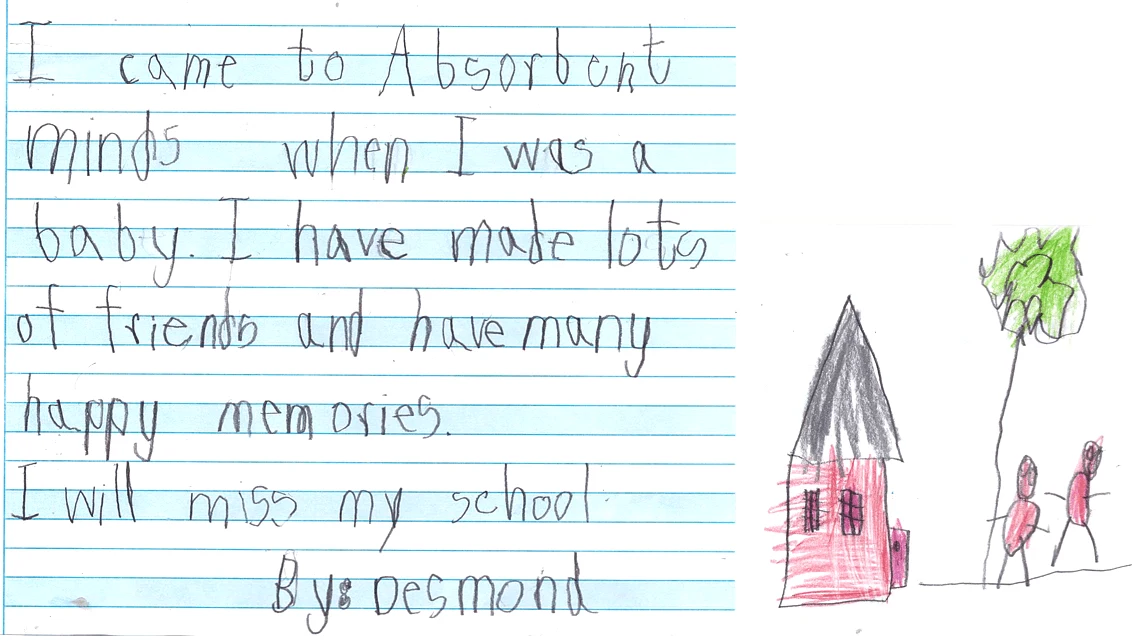 I came to Absorbent
minds when I was a
baby. I have made lots
of friends and have many
happy memories.
I will miss my school
By: Desmond